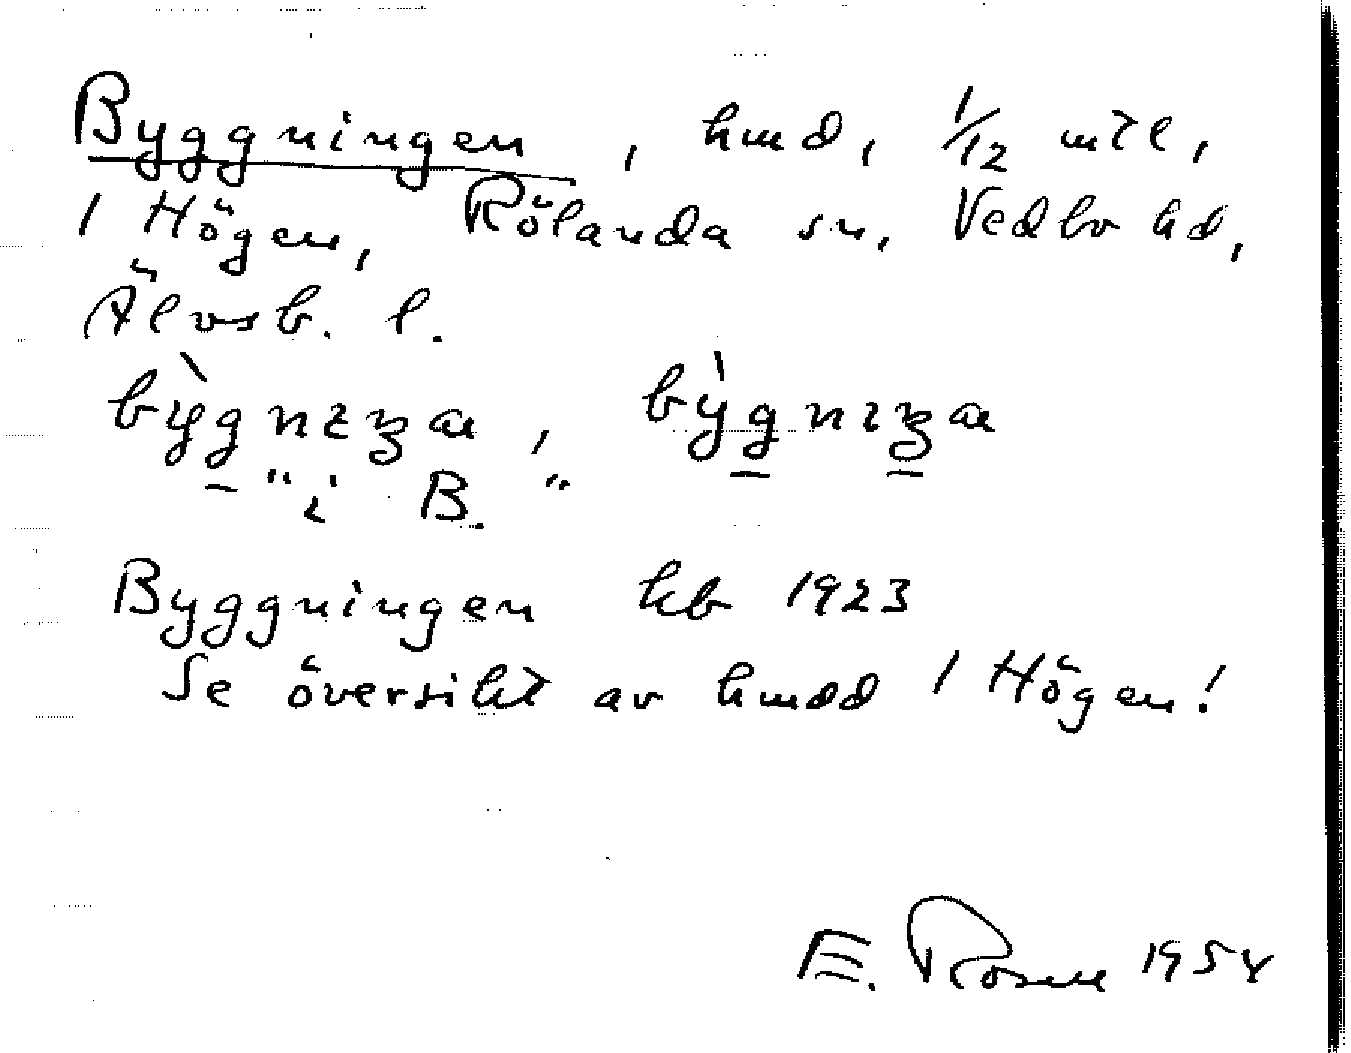 Byggningen, hmd, 1/12 mtl,
1 Högen, Rölanda sn, Vedbo hd,
Älvsb. l.
bỳgnıŋa, bỳgnıŋa
"i B."
Byggningen kb 1923
Se översikt av hmdd 1 Högen!
E. Rosell 1954